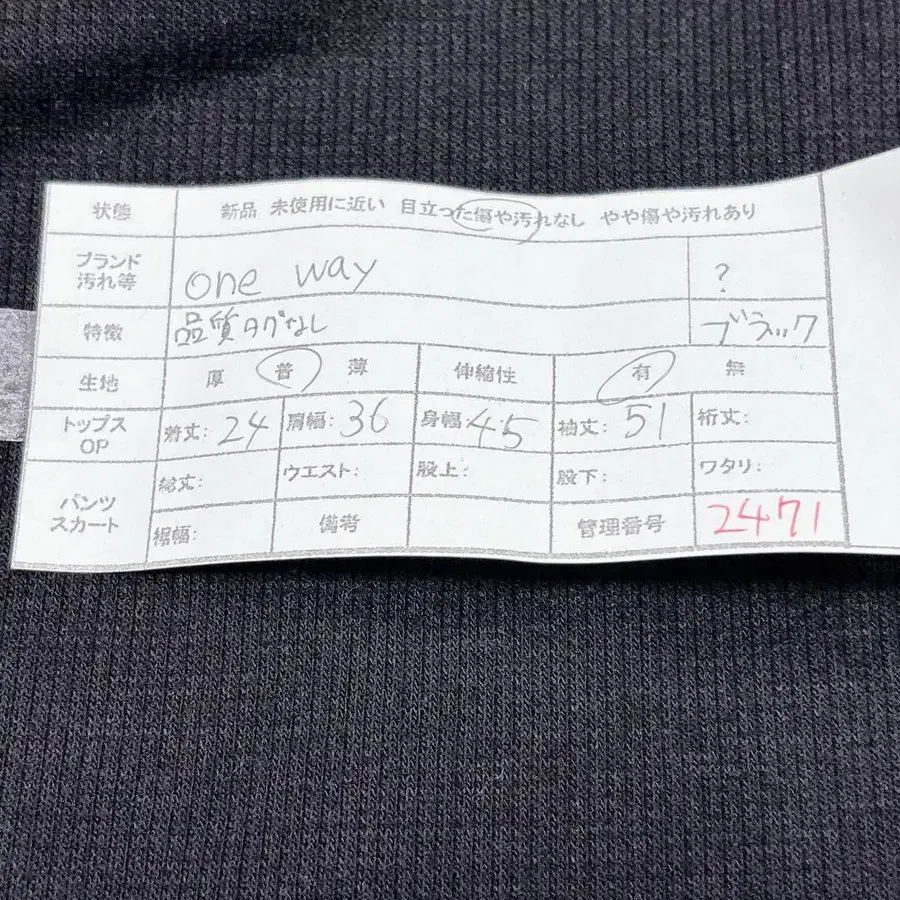 状態 新品 未使用に近い 目立った傷や汚れなし やや傷や汚れあり
ブランド
汚れ等 one way ?
特徴 品質タグなし ブラック
生地 厚 普 薄 伸縮性 有 無
トップス
OP 着丈: 24 肩幅: 36 身幅: 45 袖丈: 51 裄丈:
パンツ
スカート 総丈: ウエスト: 股上: 股下: ワタリ:
裾幅: 備考 管理番号 2471